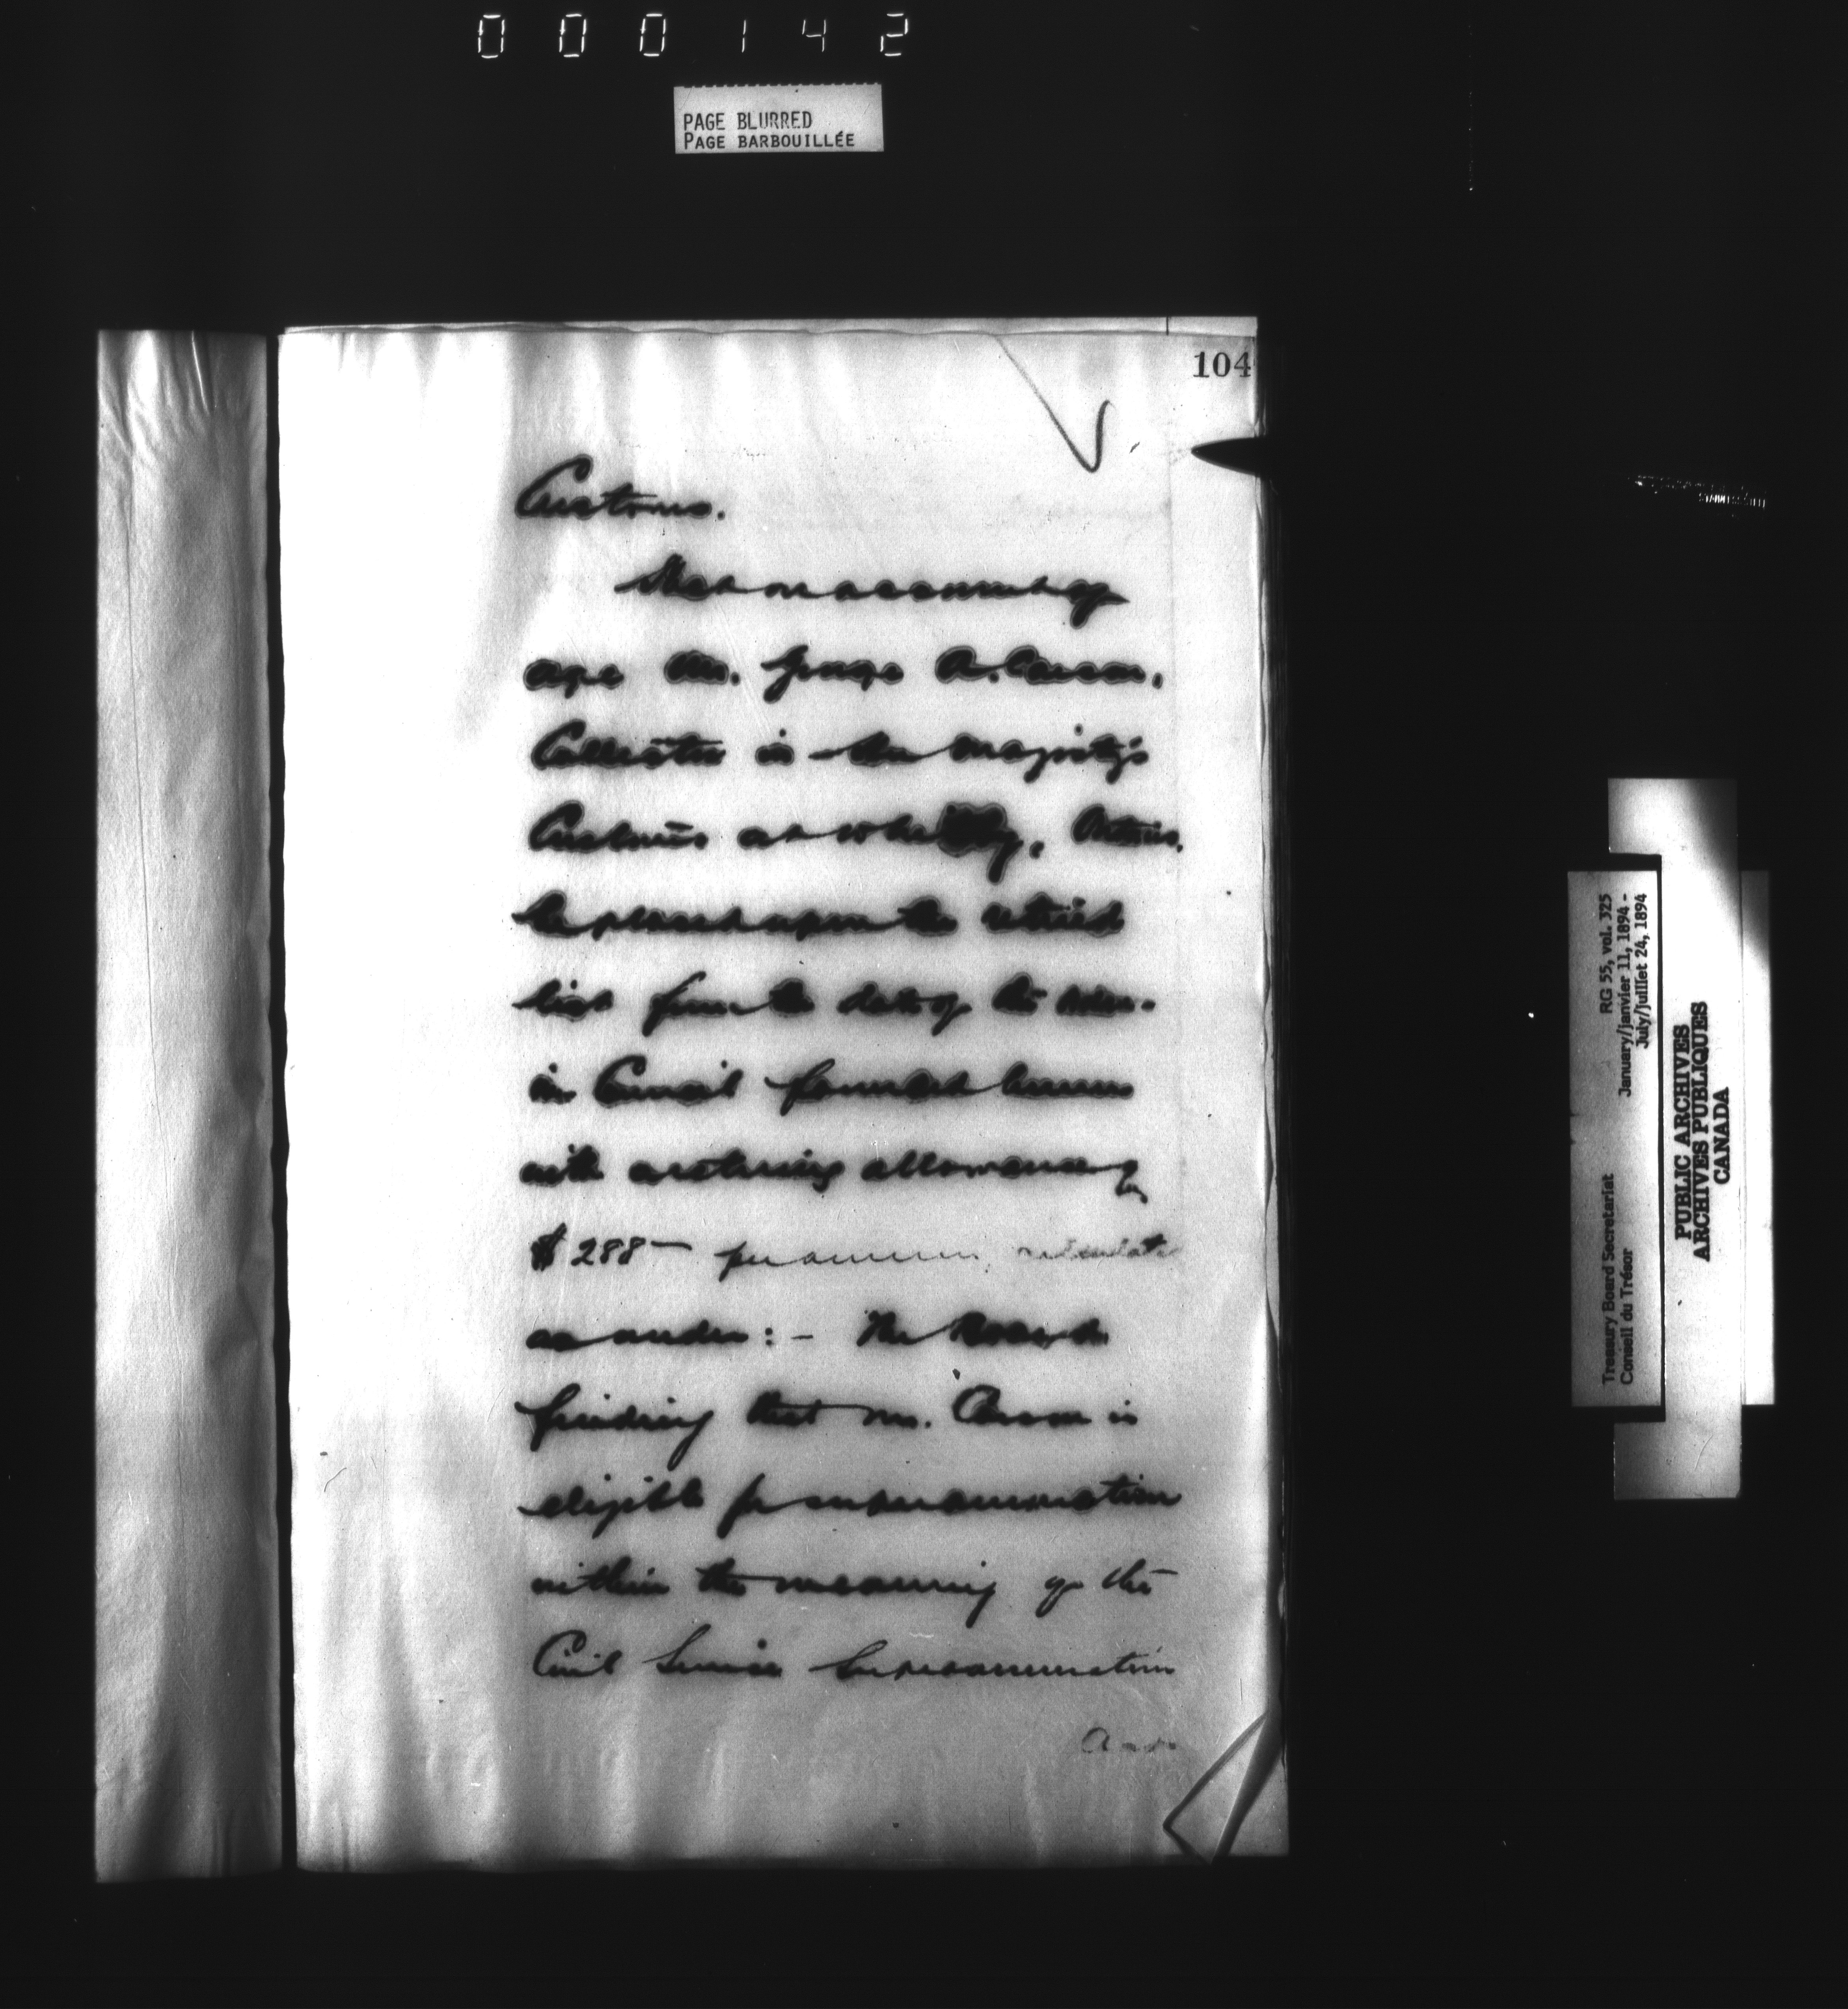 000142
PAGE BLURRED
PAGE BARBOUILLÉE
104
Customs.
That on account of
age Mr. George A. Carson,
Collector in Her Majesty's
Customs at Whitby, Ontario,
be placed upon the retired
list from the date of the Order
in Council founded hereon
with a retiring allowance of
$288— per annum, calculated
as under:- The Board
finding that Mr. Carson is
eligible for superannuation
within the meaning of the
Civil Service Superannuation
Treasury Board Secretariat RG 55, vol. 325
Conseil du Trésor January/janvier 11, 1894 -
July/juillet 24, 1894
PUBLIC ARCHIVES
ARCHIVES PUBLIQUES
CANADA